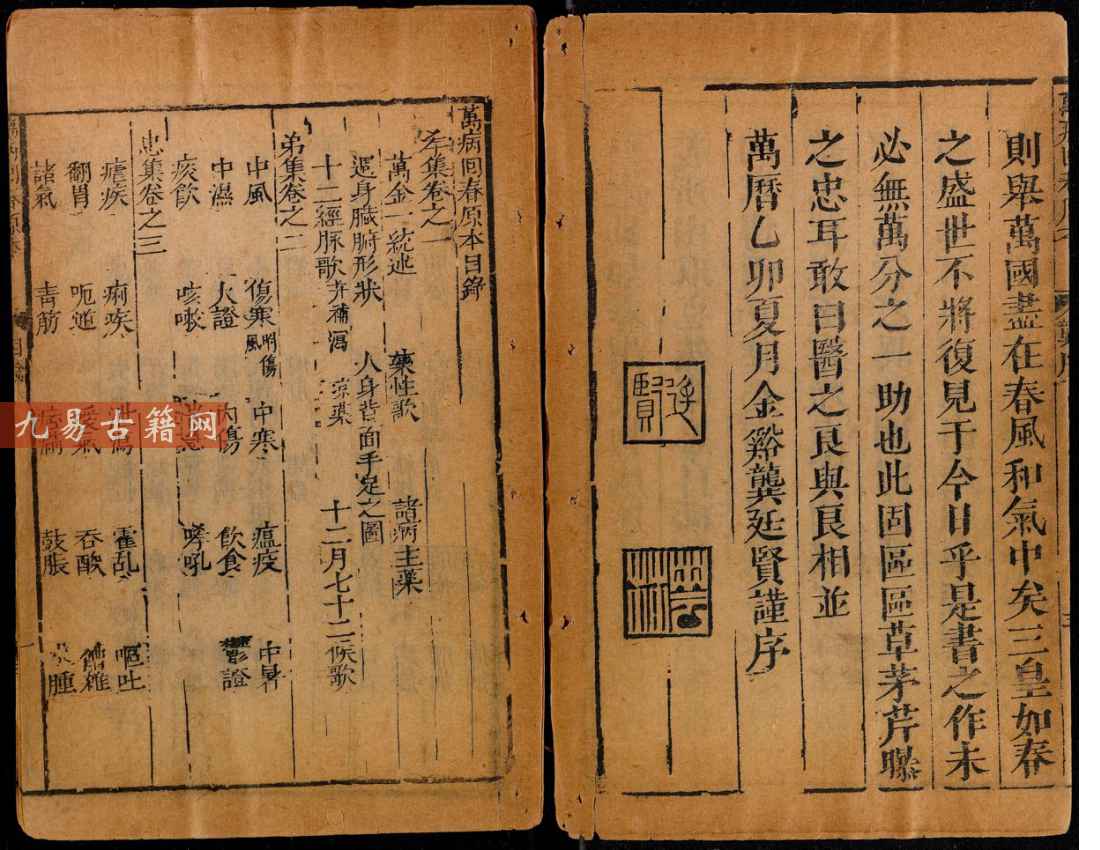 則舉萬國盡在春風和氣中矣三皇如春
之盛世不將復見于今日乎是書之作未
必無萬分之一助也此固區區草茅芹曝
之忠耳敢曰醫之良與良相並
萬曆乙卯夏月金谿龔廷賢謹序
廷賢
萬病回春原本目錄
孝集卷之一
萬金一統述 藥性歌 諸病主藥
遍身臟腑形狀 人身背面手足之圖
十二經脉歌 并補瀉涼藥 十二月七十二候歌
弟集卷之二
中風 傷寒 附傷風 中寒 瘟疫 中暑
中濕 火證 內傷 飲食 鬱證
痰飲 咳嗽 哮吼
忠集卷之三
瘧疾 痢疾 泄瀉 霍亂 嘔吐
翻胃 呃逆 噯氣 吞酸 嘈雜
諸氣 青筋 鼓脹 水腫
九易古籍网